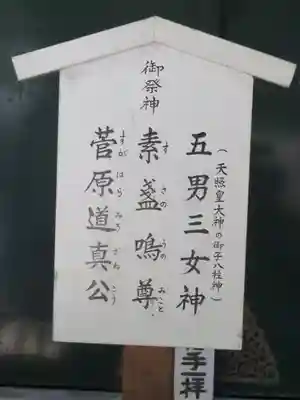 御祭神
(天照皇大神の御子八柱神)
五男三女神
素盞鳴尊
すさのうのみこと
菅原道真公
すがはらみちざねこう
手一拝